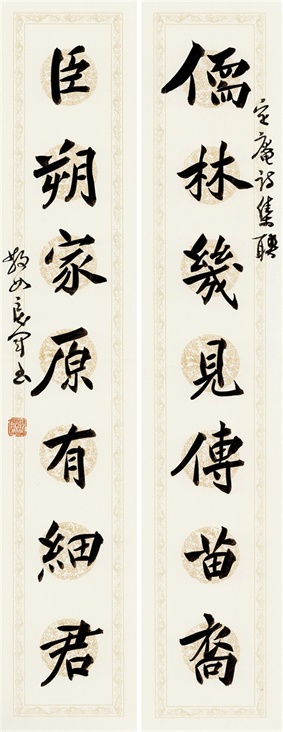 定庵詩集聯
儒林幾見傳苗裔
臣朔家原有細君